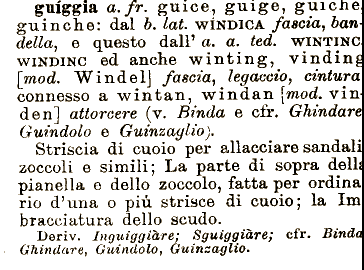 guíggia a. fr. guice, guige, guiche,
guinche: dal b. lat. WÍNDICA fascia, ban-
della, e questo dall' a. a. ted. WINTINC,
WINDINC ed anche winting, vinding
[mod. Windel] fascia, legaccio, cintura
connesso a wintan, windan [mod. vin-
den] attorcere (v. Binda e cfr. Ghindare
Guindolo e Guinzaglio).
Striscia di cuoio per allacciare sandali
zoccoli e simili; La parte di sopra della
pianella o dello zoccolo, fatta per ordina-
rio d'una o più strisce di cuoio; la Im-
bracciatura dello scudo.
Deriv. Inguiggiàre; Sguiggiàre; cfr. Binda
Ghindare, Guindolo, Guinzaglio.